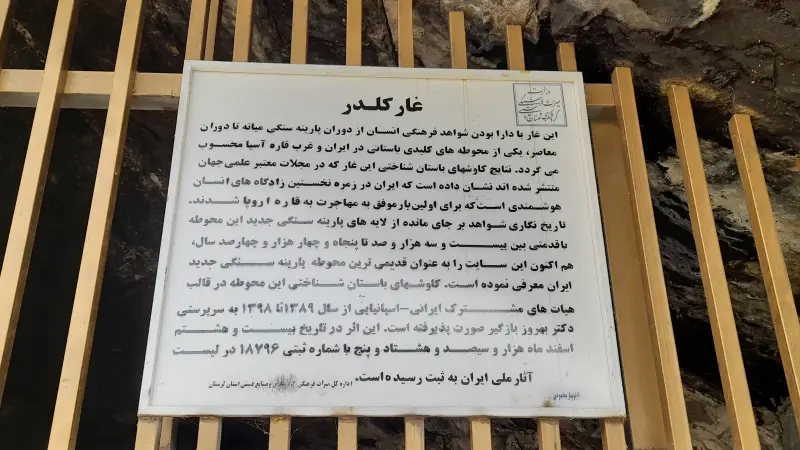 غار کلدر
این غار با دارا بودن شواهد فرهنگی انسان از دوران پارینه سنگی میانه تا دوران
معاصر، یکی از محوطه های کلیدی باستانی در ایران و غرب قاره آسیا محسوب
می گردد. نتایج کاوشهای باستان شناختی این غار که در مجلات معتبر علمی جهان
منتشر شده اند نشان داده است که ایران در زمره نخستین زادگاه های انسان
هوشمندی است که برای اولین بار موفق به مهاجرت به قاره اروپا شدند.
تاریخ نگاری شواهد بر جای مانده از لایه های پارینه سنگی جدید این محوطه
باقدمتی بین بیست و سه هزار و صد تا پنجاه و چهار هزار و چهارصد سال،
هم اکنون این سایت را به عنوان قدیمی ترین محوطه پارینه سنگی جدید
ایران معرفی نموده است. کاوشهای باستان شناختی این محوطه در قالب
هیات های مشترک ایرانی-اسپانیایی از سال ۱۳۸۹تا ۱۳۹۸ به سرپرستی
دکتر بهروز بازگیر صورت پذیرفته است. این اثر در تاریخ بیست و هشتم
اسفند ماه هزار و سیصد و هشتاد و پنج با شماره ثبتی ۱۸۷۹۶ در لیست
آثار ملی ایران به ثبت رسیده است.
اداره کل میراث فرهنگی وصنایع دستی استان لرستان